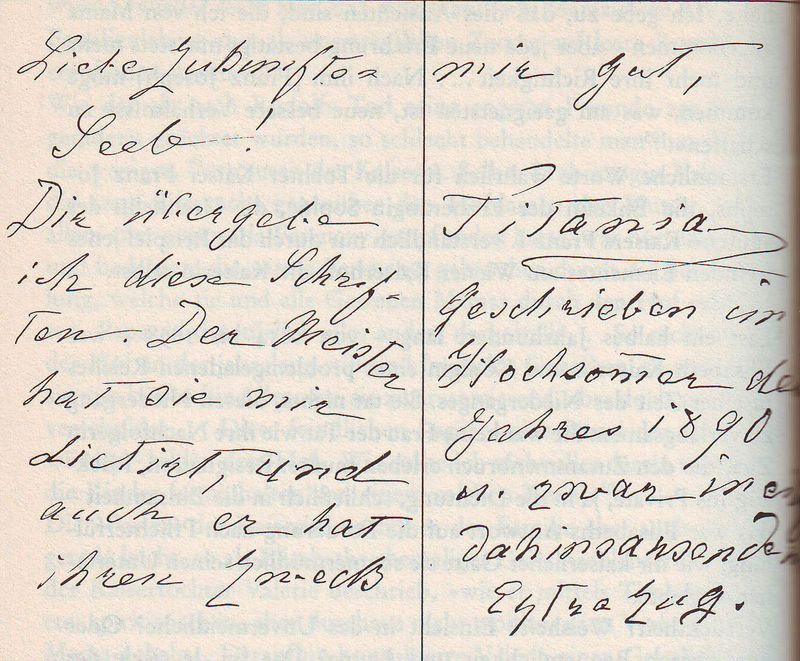 Liebe Zukunfts
Seele!
Dir übergebe
ich diese Schrif
ten. Der Meister
hat sie mir
dictirt, und
auch er hat
ihren Zweck
mir Gut,
Titania
Geschrieben im
Hochsom̅er de
Jahres 1890
u. zwar im
dahinsausenden
Extrazug.